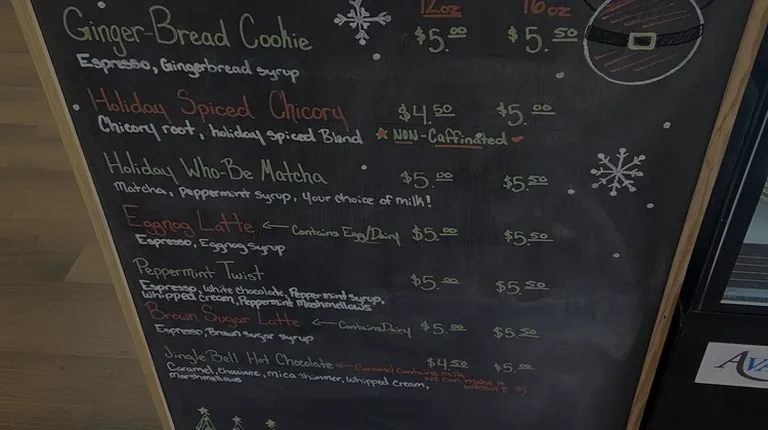 12oz 16oz
Ginger-Bread Cookie $5.00 $5.50
Espresso, Gingerbread syrup
Holiday Spiced Chicory $4.50 $5.00
Chicory root, holiday spiced Blend ★ NON-Caffinated
Holiday Who-Be Matcha $5.00 $5.50
Matcha, Peppermint syrup, your choice of milk!
Eggnog Latte ← Contains Egg/Dairy $5.00 $5.50
Espresso, Eggnog syrup
Peppermint Twist $5.00 $5.50
Espresso, white chocolate, Peppermint syrup,
whipped cream, Peppermint Marshmellows
Brown Sugar Latte ← Contains Dairy $5.00 $5.50
Espresso, Brown sugar syrup
Jingle Bell Hot Chocolate ← Caramel contains milk $4.50 $5.00
we can make it
without it :)
Caramel, chocolate, mica shimmer, whipped cream,
marshmellows